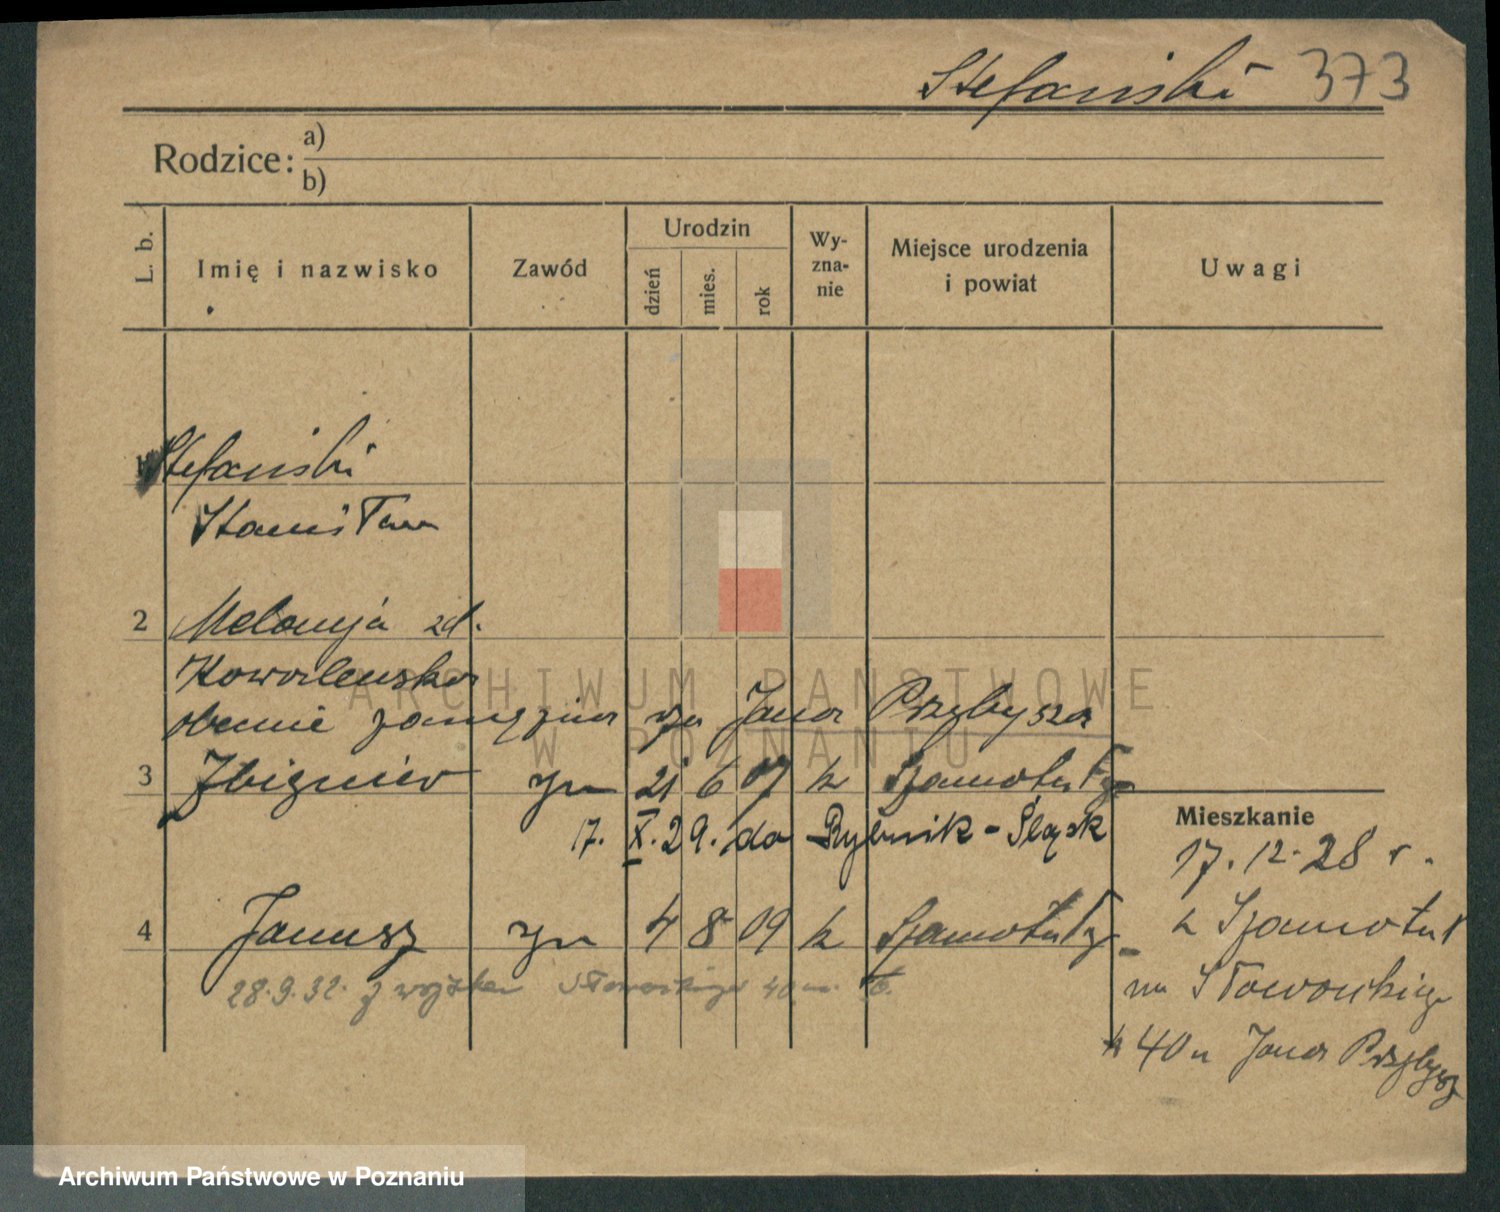 Stefański 373
Rodzice: a)
b)
L. b.
Imię i nazwisko
Zawód
Urodzin
dzień
mies.
rok
Wy-
zna-
nie
Miejsce urodzenia
i powiat
Uwagi
1 Stefański
Stanisław
2 Melanja zd.
Kowalewska
obecnie zamężna za Jana Przybysza
3 Zbigniew syn 21 6 07 k Szamotuły
17. X. 29. do Rybnik - Śląsk
4 Janusz syn 4 8 09 k Szamotuły
28.9.32. z wojska Słowackiego 40 m.
Mieszkanie
17. 12. 28 r.
z Szamotuł
na Słowackiego
40 u Jana Przybysz
ARCHIWUM PAŃSTWOWE
W POZNANIU
Archiwum Państwowe w Poznaniu